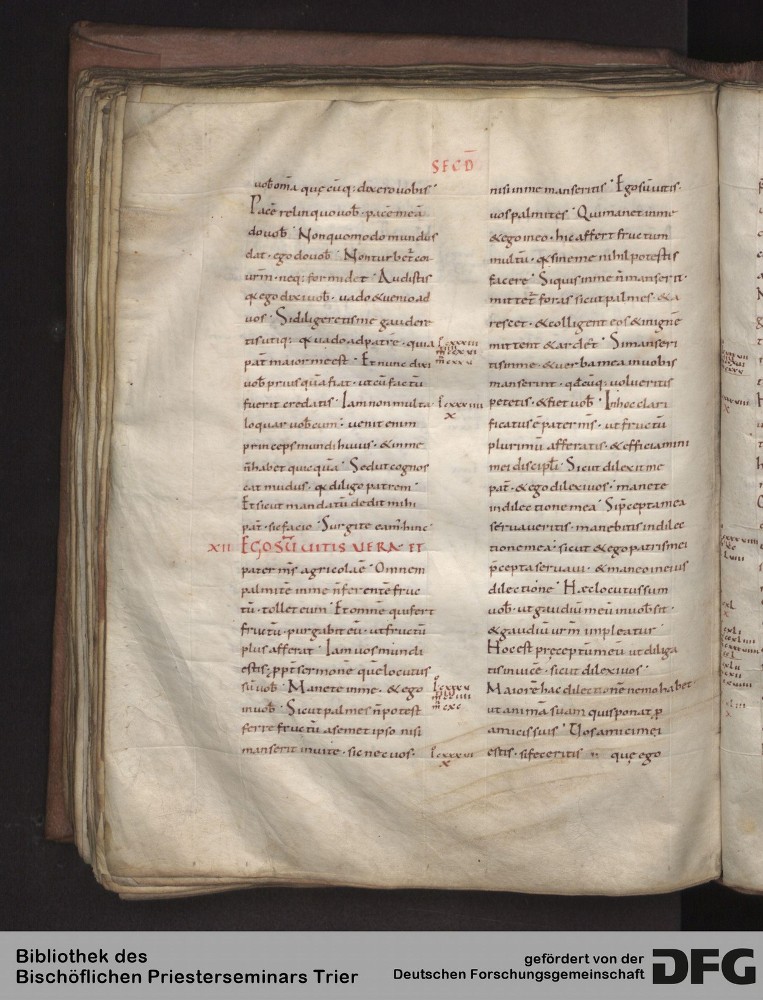 SECD̄
uob̄ om̄a quę cūq: dixero uobis·
Pacē relinquo uob̄· pacē meā
do uob̄· Non quomodo mundus
dat· ego do uob̄· Non turbet̄ cor
urm̄· neq: formidet· Audistis
q̄a ego dixi uob̄· uado & uenio ad
uos· Si diligeretis me gauderē
tis utiq: q̄a uado ad patrē· quia
pat̄ maior me est· Et nunc dixi
uob̄ prius quā fiat· ut cū factū
fuerit credatis· Iam non multa
loquar uob̄cum· uenit enim
princeps mundi huius· & in me
n̄ habet quicquā· Sed ut cognos
cat mūdus· q̄a diligo patrem·
Et sicut mandatū dedit mihi
pat̄· sic facio· Surgite eam' hinc·
XII EGO SŪ UITIS UERA· ET
pater m̄s agricola ē· Omnem
palmitē in me n̄ ferentē fruc
tū· tollet eum· Et omnē qui fert
fructū· purgabit eū· ut fructū
plus afferat· Iam uos mundi
estis· ppt̄ sermonē quē locutus
sū uob̄· Manete in me· & ego
in uob̄· Sicut palmes n̄ potest
ferre fructū a semet ipso nisi
manserit in uite· sic nec uos·
lcxxxiiii
x
lcxxxvi
x
nisi in me manseritis· Ego sū uitis·
uos palmites· Qui manet in me
& ego in eo· hic affert fructum
multū· q̄a sine me nihil potestis
facere· Si quis in me n̄ manserit·
mittet̄ foras sicut palmes· & a
rescet· & colligent eos & in ignē
mittent & ardet· Si manseri
tis in me· & uerba mea in uobis
manserint· qdcūq: uolueritis
petetis· & fiet uob̄· In hoc clari
ficatus ē pater m̄s· ut fructū
plurimū afferatis· & efficiamini
mei discipl̄i· Sicut dilexit me
pat̄· & ego dilexi uos· manete
in dilectione mea· Si p̄cepta mea
seruaueritis· manebitis in dilec
tione mea· sicut & ego patris mei
p̄cepta seruaui· & maneo in eius
dilectione· Hæc locutus sum
uob̄· ut gaudiū meū in uob̄ sit·
& gaudiū urm̄ impleatur·
Hoc est preceptū meū ut diliga
tis inuicē· sicut dilexi uos·
Maiorē hac dilectionē nemo habet·
ut animā suam quis ponat p̱
amicis suis· Uos amici mei
estis· si feceritis quę ego
Bibliothek des
Bischöflichen Priesterseminars Trier
gefördert von der
Deutschen Forschungsgemeinschaft
DFG